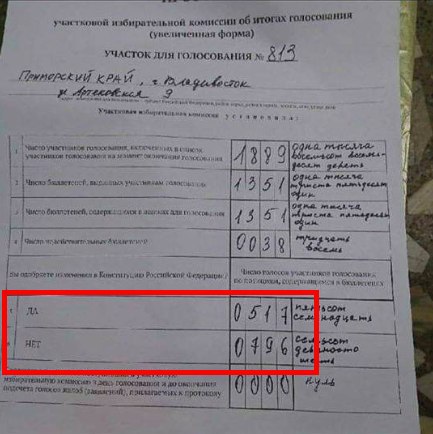 участковой избирательной комиссии об итогах голосования
(увеличенная форма)
УЧАСТОК ДЛЯ ГОЛОСОВАНИЯ № 813
ПРИМОРСКИЙ КРАЙ, г. Владивосток
ул Артековская 9
Участковая избирательная комиссия установила:
1 Число участников голосования, включенных в список участников голосования на момент окончания голосования 1889 одна тысяча
восемьсот восемь-
десят девять
2 Число бюллетеней, выданных участникам голосования 1351 одна тысяча
триста пятьдесят
один
3 Число бюллетеней, содержащихся в ящиках для голосования 1351 одна тысяча
триста пятьдесят
один
4 Число недействительных бюллетеней 0038 тридцать
восемь
Вы одобряете изменения в Конституцию Российской Федерации? Число голосов участников голосования
по позициям, содержащимся в бюллетенях
5 ДА 0517 пятьсот
семнадцать
6 НЕТ 0796 семьсот
девяносто
шесть
избирательную комиссию в день голосования и до окончания
подсчета голосов жалоб (заявлений), прилагаемых к протоколу 0000 нуль